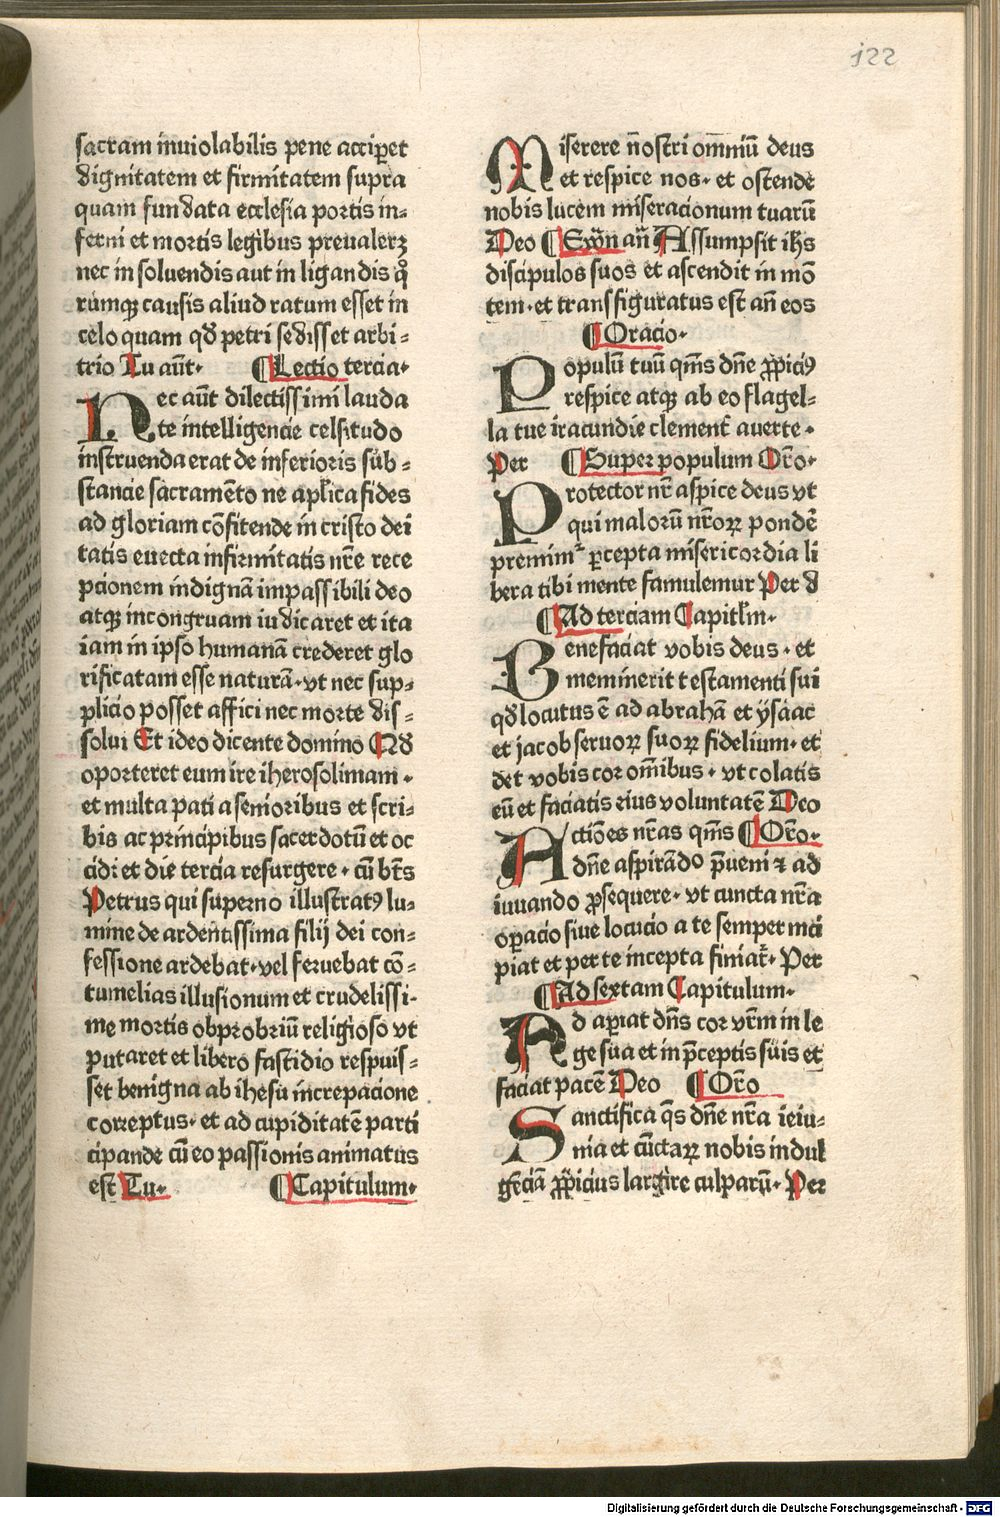 122
sacram inuiolabilis pene accip̱et
dignitatem et firmitatem supra
quam fundata ecclesia portis in⸗
ferni et mortis legibus preualerꝫ
nec in soluendis aut in ligandis qͦ̄
rūmqꝫ causis aliud ratum esset in
celo quam qd̄ petri sedisset arbi⸗
trio Tu aūt· ¶Lectio tercia·
Nec aūt dilectissimi lauda
te intelligencie celsitudo
instruenda erat de inferioris sub⸗
stancie sacramēto ne apl̄ica fides
ad gloriam cōfitende in cristo dei
tatis euecta infirmitatis nr̄e rece
pcionem indignā impassibili deo
atqꝫ incongruam iudicaret et ita
iam in ipso humanā crederet glo
rificatam esse naturā· vt nec sup⸗
plicio posset affici nec morte dis⸗
solui Et ideo dicente domino Qd̄
oporteret eum ire iherosolimam·
et multa pati a senioribus et scri⸗
bis ac principibus sacerdotū et oc
cidi et die tercia resurgere· cū bt̄s
Petrus qui superno illustratꝯ lu⸗
mine de ardentissima filij dei con⸗
fessione ardebat· vel feruebat cō⸗
tumelias illusionum et crudelissi⸗
me mortis obprobriū religioso vt
putaret et libero fastidio respuis⸗
set benigna ab ihesu increpacione
correptus· et ad cupiditatē parti
cipande cū eo passionis animatus
est Tu· ¶Capitulum·
Miserere n̄ostri om̄niū deus
et respice nos· et ostende
nobis lucem miseracionum tuarū
Deo ¶Ewn̄ an̄ Assumpsit ihs
discipulos suos et ascendit in mō
tem· et transfiguratus est an̄ eos
¶Oracio·
Populū tuū qm̄s dn̄e ꝓpiciꝯ
respice atqꝫ ab eo flagel⸗
la tue iracundie clement̄ auerte·
Per ¶Super populum Or̄o·
Protector nr̄ aspice deus vt
qui malorū nr̄oꝝ pondē
premimᷣ ꝑcepta misericordia li
bera tibi mente famulemur Per d
¶Ad terciam Capitl̄m·
Benefaciat vobis deus· et
meminerit testamenti sui
qd̄ locutus ē ad abrahā et ysaac
et jacob seruoꝝ suoꝝ fidelium· et
det vobis cor om̄ibus· vt colatis
eū et faciatis eius voluntatē Deo
Actiōes nr̄as qm̄s ¶Or̄o·
dn̄e aspirādo p̄ueni ⁊ ad
iuuando ꝓsequere· vt cuncta nr̄a
oꝑacio siue locucio a te semper inci
piat et per te incepta finiat̄· Per
¶Ad sextam Capitulum·
Ad aꝑiat dn̄s cor vr̄m in le
ge sua et in p̄ceptis suis et
faciat pacē Deo ¶Or̄o
Sanctifica q̄s dn̄e nr̄a ieiu⸗
nia et cūctaꝝ nobis indul
gēciā ꝓpicius largire culparū· Per
Digitalisierung gefördert durch die Deutsche Forschungsgemeinschaft - DFG